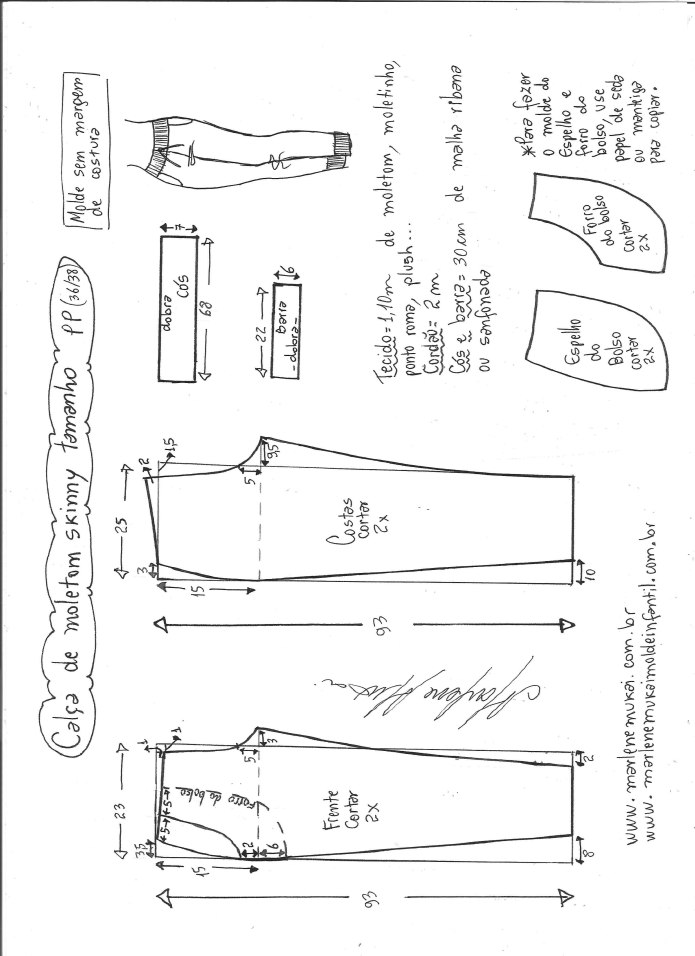 Calça de moletom skinny tamanho PP (36/38)
Molde sem margem
de costura
23
3,5
5
5
1
1
15
Forro do bolso
5
3
2
6
Frente
Cortar
2x
93
8
2
25
3
2
1,5
15
5
9,5
Costas
cortar
2x
93
10
dobra
cós
7
68
22
barra
-dobra-
6
Tecido = 1,10m de moletom, moletinho,
ponto roma, plush...
Cordão = 2m
Cós e barra = 30cm de malha ribana
ou sanfonada
Espelho
do
Bolso
cortar
2x
Forro
do bolso
cortar
2x
*Para fazer
o molde do
Espelho e
forro do
bolso, use
papel de seda
ou manteiga
para copiar.
www.marlenemukai.com.br
www.marlenemukaimoldeinfantil.com.br